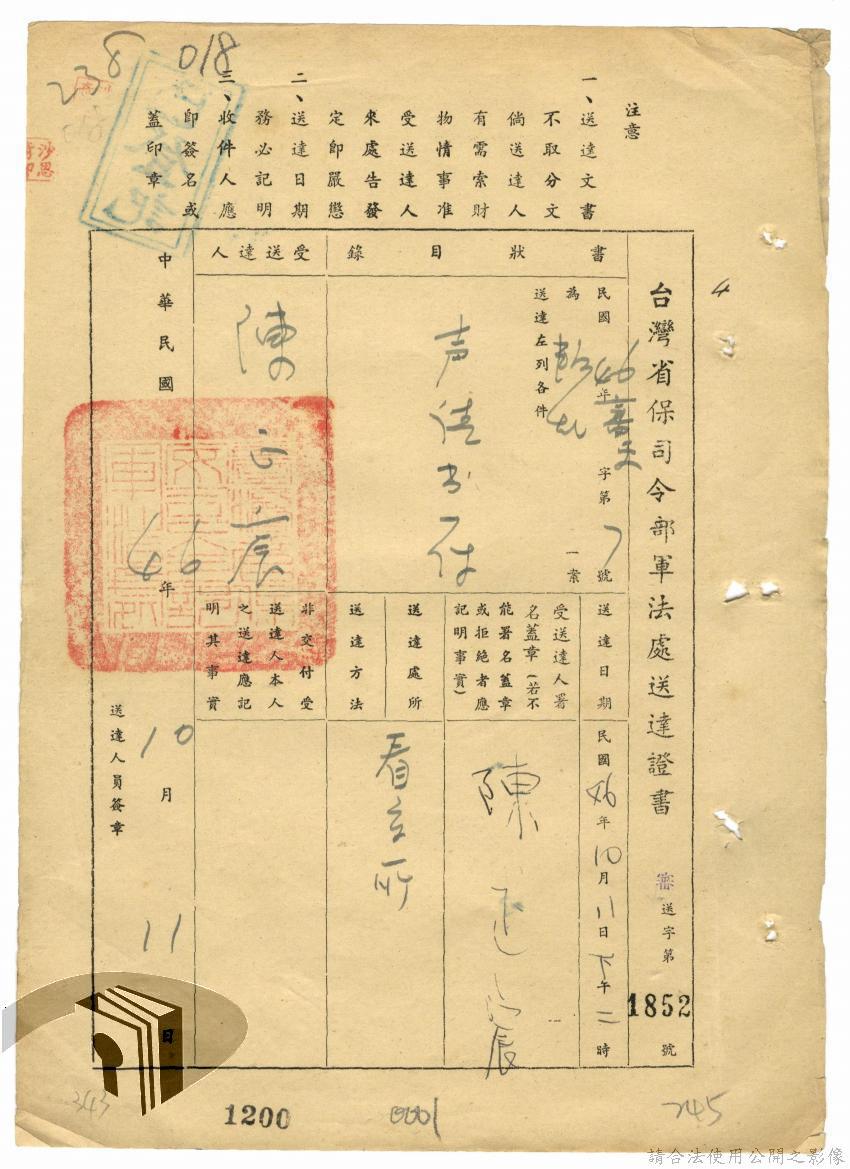 台灣省保司令部軍法處送達證書
審送字第1852號
4
注意
一、送達文書
不取分文
倘送達人
有需索財
物情事准
受送達人
來處告發
定即嚴懲
二、送達日期
務必記明
三、收件人應
即簽名或
蓋印章
018
238
書狀目錄
民國46年審字第7號
為
一案
送達左列各件
受送達人
陳
送達日期
民國46年10月11日下午二時
受送達人署
名蓋章(若不
能署名蓋章
或拒絕者應
記明事實)
陳
送達處所
看守所
送達方法
非交付受
送達人本人
之送達應記
明其事實
中華民國46年10月11日
送達人員簽章
343
1200
0001
245
請合法使用公開之影像